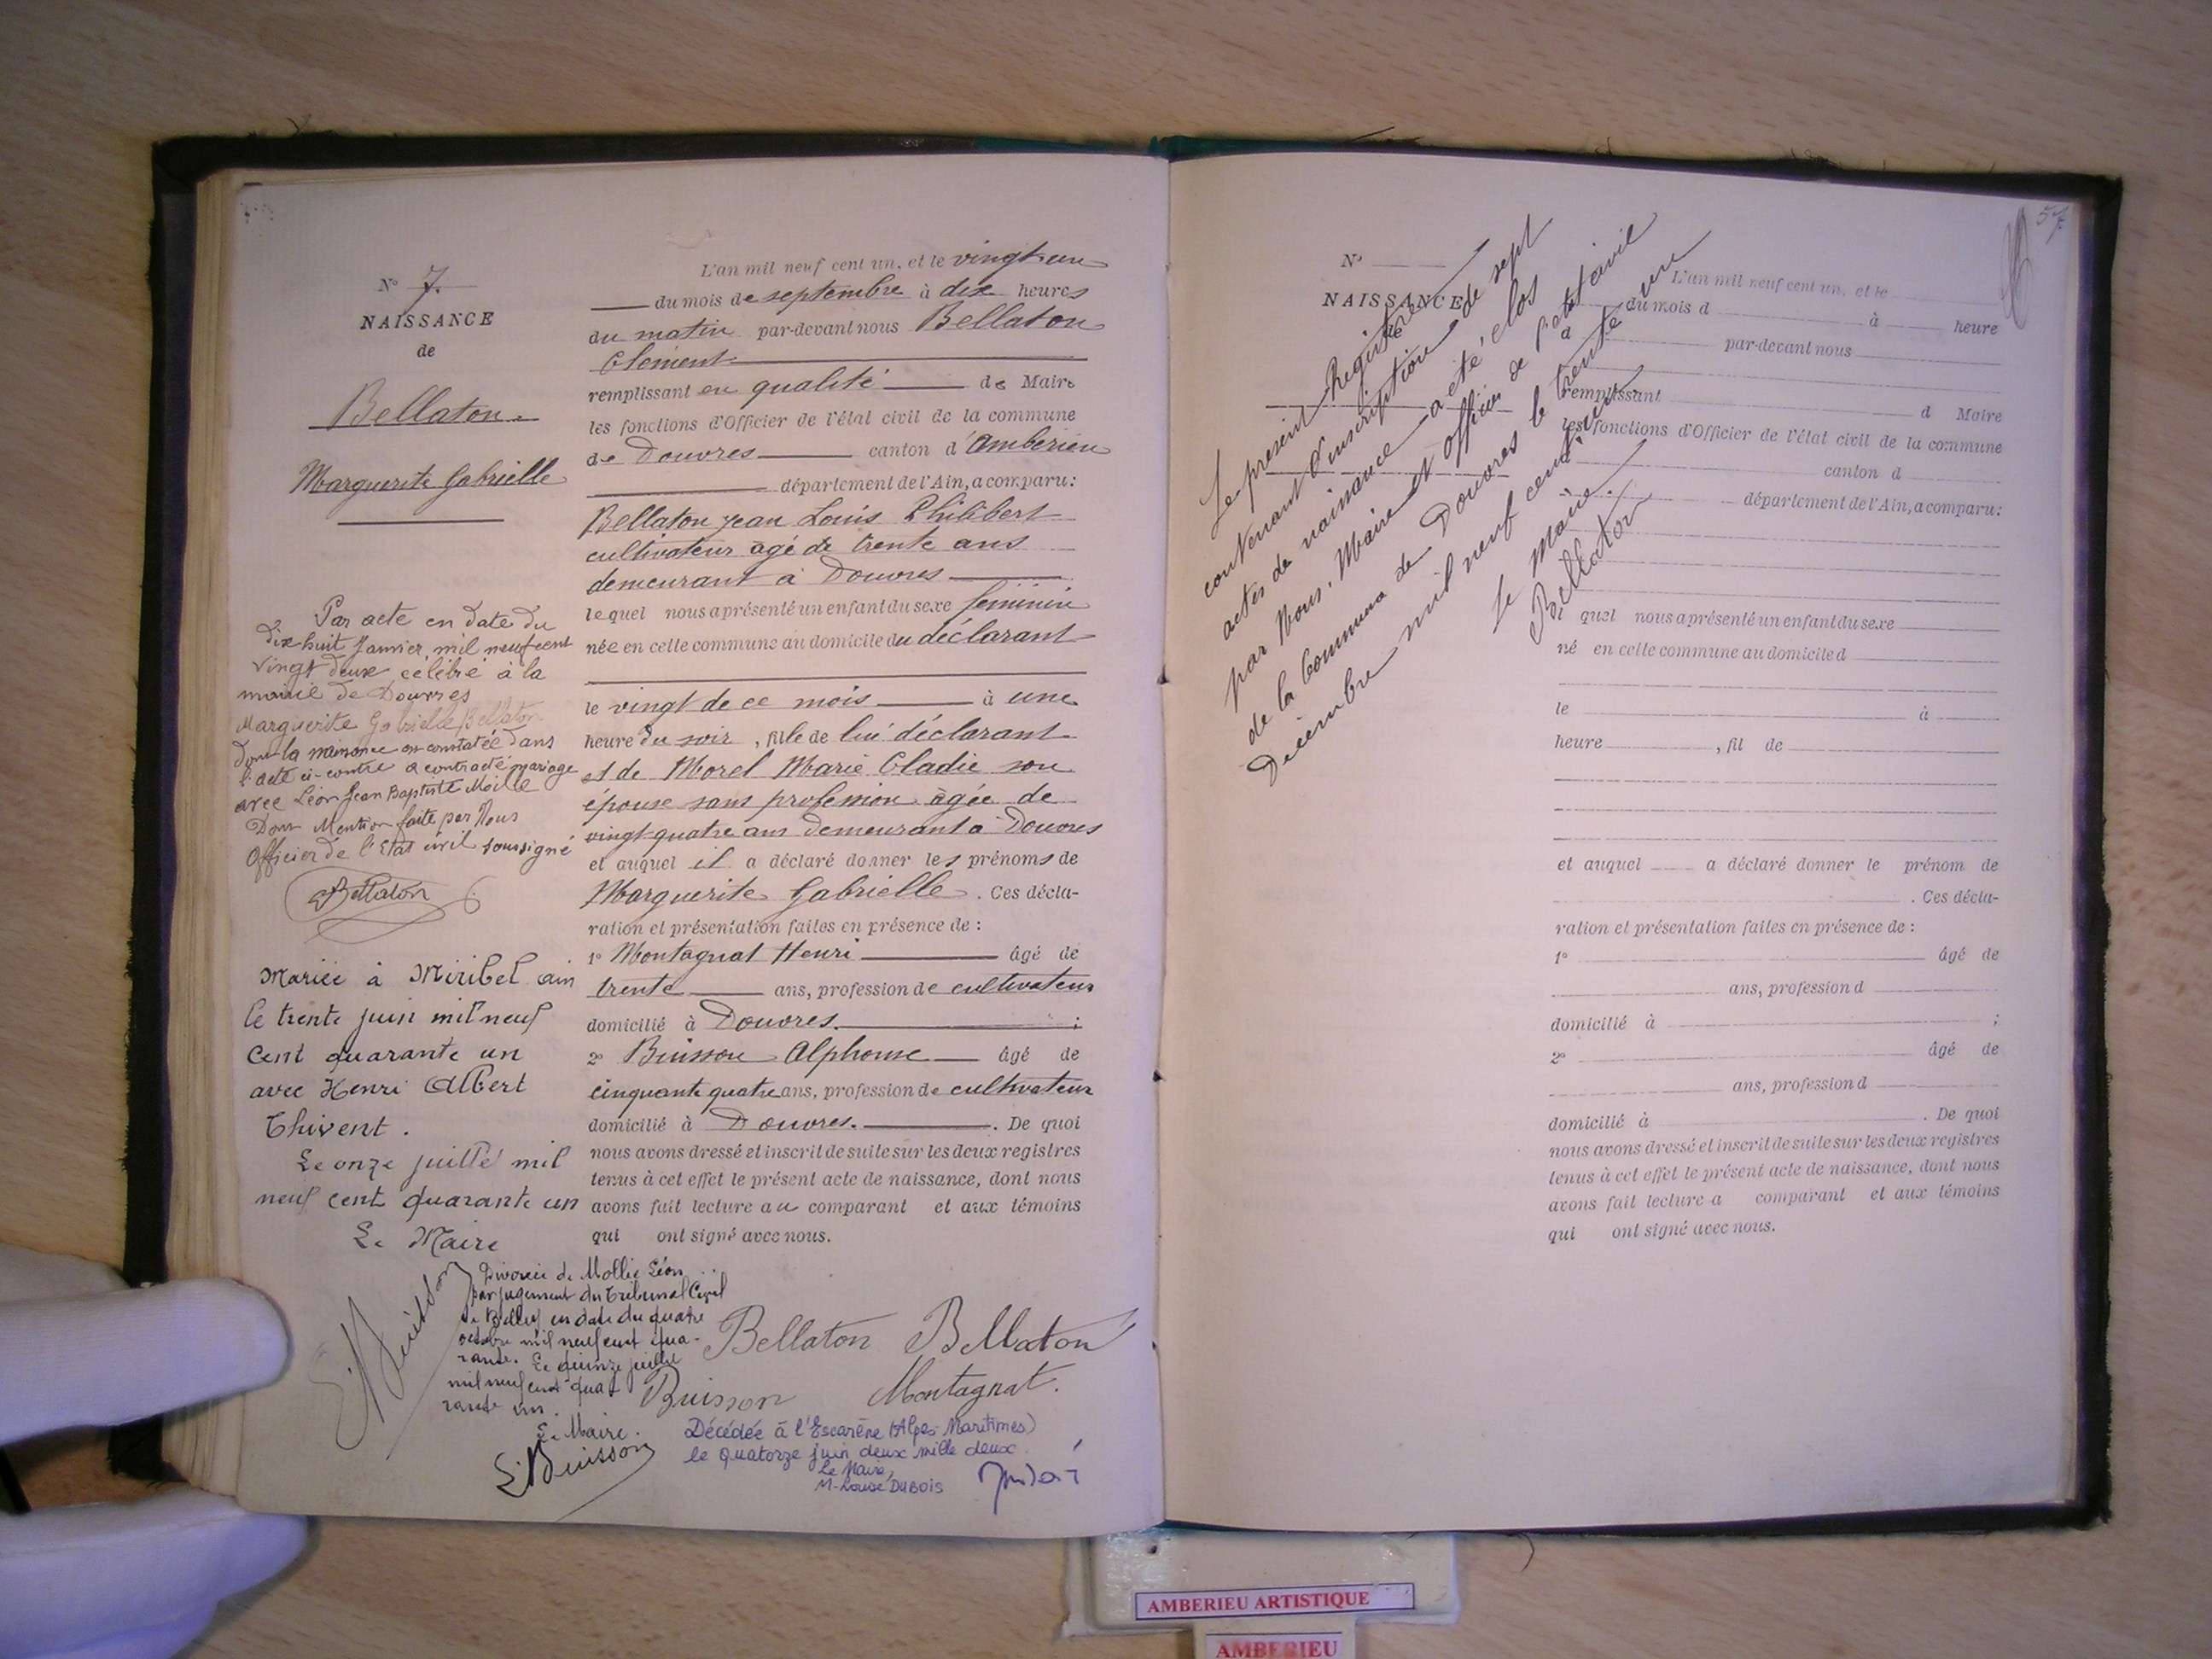 N° 7.
NAISSANCE
de
Bellaton
Marguerite Gabrielle
Par acte en date du
dix huit Janvier mil neuf cent
vingt deux célébré à la
mairie de Douvres
Marguerite Gabrielle Bellaton
dont la naissance est constatée dans
l'acte ci-contre a contracté mariage
avec Léon Jean Baptiste
Dont Mention faite par Nous
Officier de l'Etat civil soussigné
Bellaton
Mariée à Miribel ain
le trente juin mil neuf
cent quarante un
avec Henri Albert
Thivent.
Le onze juillet mil
neuf cent quarante un
Le Maire
Divorcée de Mollie Léon
par jugement du Tribunal Civil
de Belley en date du quatre
octobre mil neuf cent qua-
rante. Le quinze juillet
mil neuf cent qua
rante un.
Le Maire.
Buisson
L'an mil neuf cent un, et le vingt un
du mois de septembre à dix heures
du matin par-devant nous Bellaton
Clément
remplissant en qualité de Maire
les fonctions d'Officier de l'état civil de la commune
de Douvres canton d'Ambérieu
département de l'Ain, a comparu:
Bellaton Jean Louis Philibert
cultivateur âgé de trente ans
demeurant à Douvres
lequel nous a présenté un enfant du sexe féminin
née en cette commune au domicile du déclarant
le vingt de ce mois à une
heure du soir, fille de lui déclarant
et de Morel Marie Cladie son
épouse sans profession âgée de
vingt-quatre ans demeurant à Douvres
et auquel il a déclaré donner les prénoms de
Marguerite Gabrielle. Ces décla-
ration et présentation faites en présence de :
1° Montagnat Henri âgé de
trente ans, profession de cultivateur
domicilié à Douvres. ;
2° Buisson Alphonse âgé de
cinquante quatre ans, profession de cultivateur
domicilié à Douvres. De quoi
nous avons dressé et inscrit de suite sur les deux registres
tenus à cet effet le présent acte de naissance, dont nous
avons fait lecture au comparant et aux témoins
qui ont signé avec nous.
Bellaton Bellaton
Buisson Montagnat.
Décédée à l'Escarène (Alpes-Maritimes)
le quatorze juin deux mille deux.
Le Maire,
M-Louise DUBOIS
57
N°
NAISSANCE
de
Le présent Registre
contenant l'inscription de sept
actes de naissance a été clos
par Nous, Maire et officier de l'état civil
de la Commune de Douvres le trente un
Décembre mil neuf cent un.
Le Maire
Bellaton
L'an mil neuf cent un, et le
du mois d à heure
par-devant nous
remplissant d Maire
les fonctions d'Officier de l'état civil de la commune
d canton d
département de l'Ain, a comparu:
quel nous a présenté un enfant du sexe
né en cette commune au domicile d
le à
heure , fil de
et auquel a déclaré donner le prénom de
. Ces décla-
ration et présentation faites en présence de :
1° âgé de
ans, profession d
domicilié à ;
2° âgé de
ans, profession d
domicilié à . De quoi
nous avons dressé et inscrit de suite sur les deux registres
tenus à cet effet le présent acte de naissance, dont nous
avons fait lecture a comparant et aux témoins
qui ont signé avec nous.
AMBERIEU ARTISTIQUE
AMBERIEU